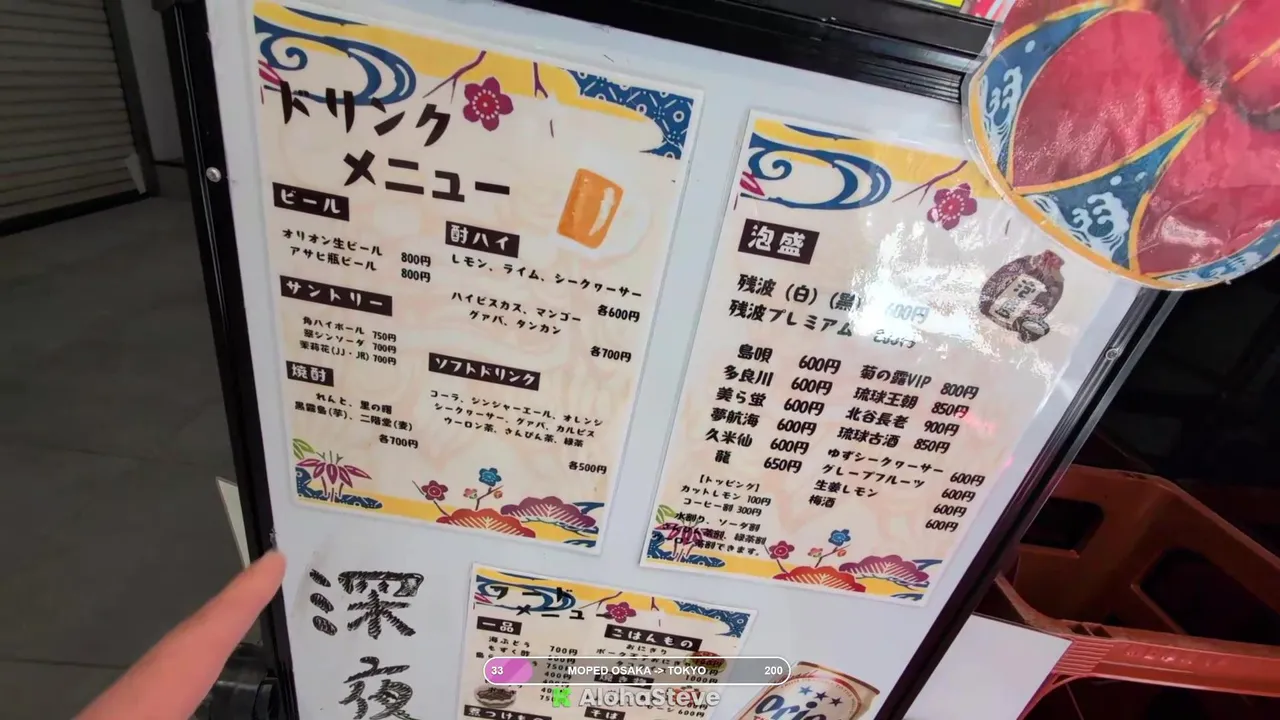 ドリンク
メニュー
ビール
オリオン生ビール 800円
アサヒ瓶ビール 800円
サントリー
角ハイボール 750円
翠ジンソーダ 700円
茉莉花(JJ・JR) 700円
焼酎
れんと、里の曙
黒霧島(芋)、二階堂(麦)
各700円
酎ハイ
レモン、ライム、シークヮーサー
各600円
ハイビスカス、マンゴー
グァバ、タンカン
各700円
ソフトドリンク
コーラ、ジンジャーエール、オレンジ
シークヮーサー、グァバ、カルピス
ウーロン茶、さんぴん茶、緑茶
各500円
泡盛
残波(白)(黒) 600円
残波プレミアム
島唄 600円
多良川 600円
美ら蛍 600円
夢航海 600円
久米仙 600円
龍 650円
菊の露VIP 800円
琉球王朝 850円
北谷長老 900円
琉球古酒 850円
ゆずシークヮーサー 600円
グレープフルーツ 600円
生姜レモン 600円
梅酒 600円
【トッピング】
カットレモン 100円
コーヒー割 300円
水割り、ソーダ割
茶割、緑茶割
茶割できます。
深夜
フード
メニュー
一品
海ぶどう 700円
もずく酢
ごはんもの
おにぎり
煮つけもの
そば
600円
Orio
33 MOPED OSAKA -> TOKYO 200
AlohaSteve